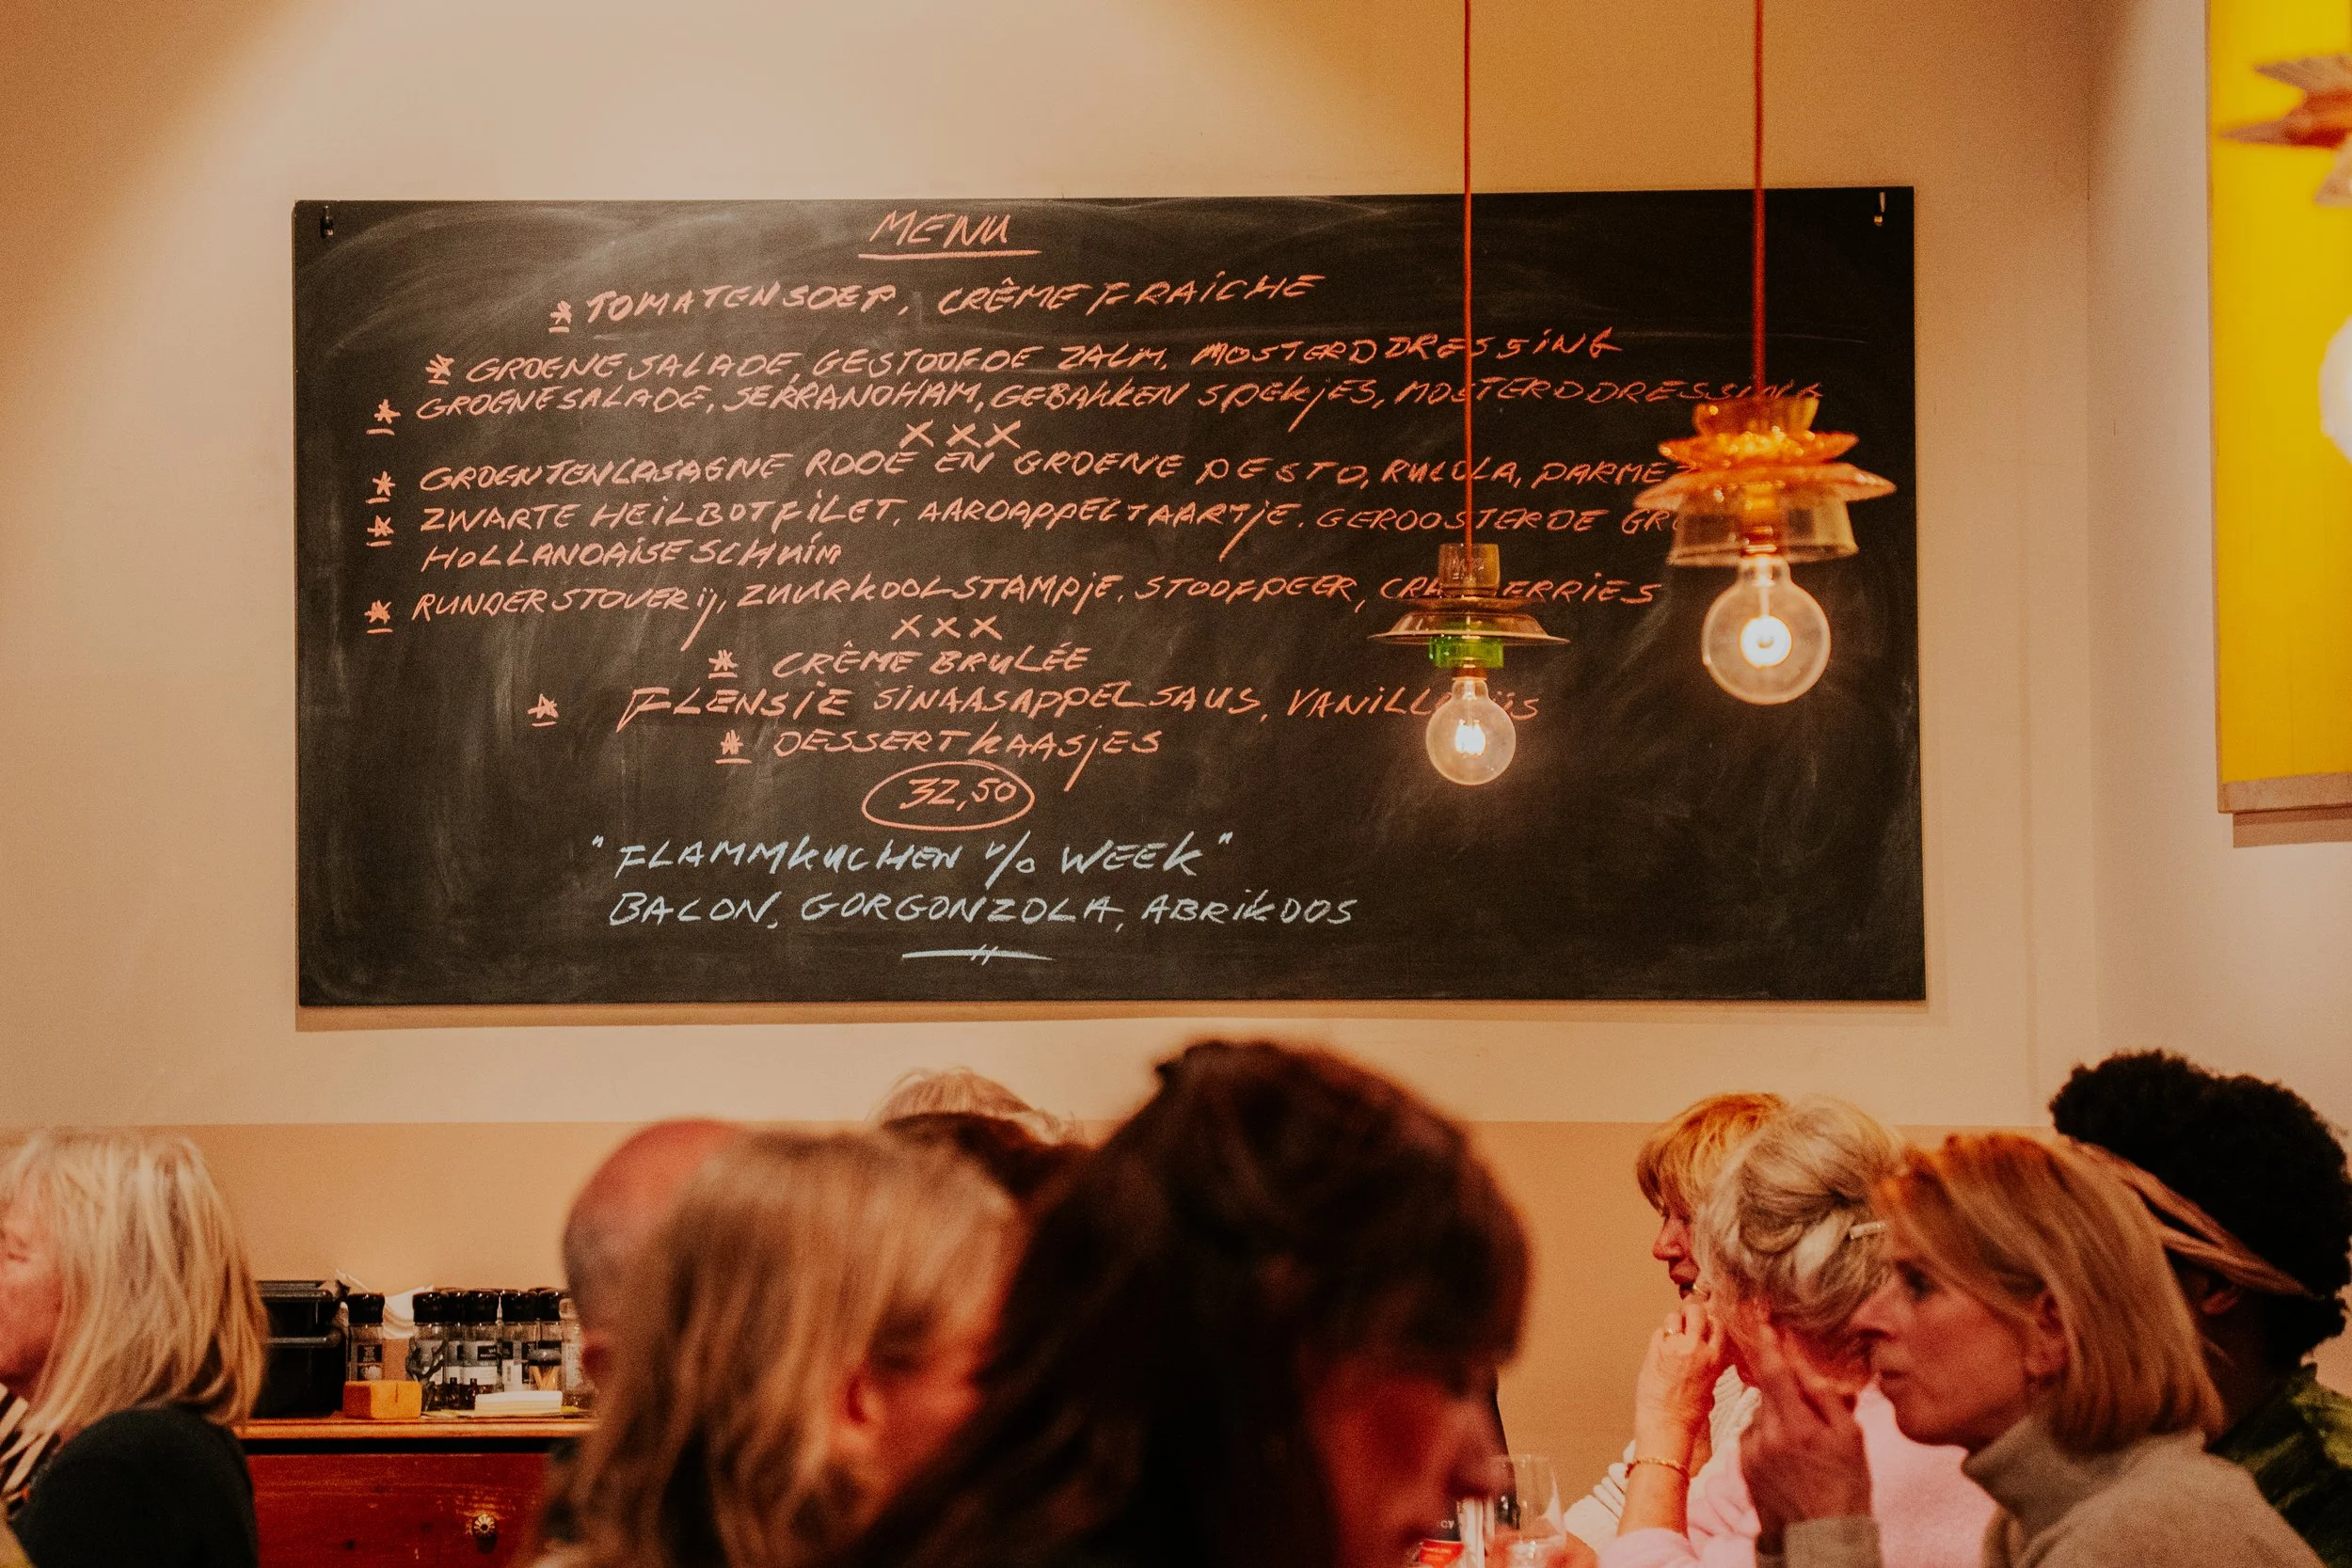 MENU
* TOMATENSOEP, CRÊME FRAICHE
* GROENE SALADE, GESTOOFDE ZALM, MOSTERDDRESSING
* GROENE SALADE, SERRANOHAM, GEBAKKEN SPEKJES, MOSTERDDRESSING
XXX
* GROENTENLASAGNE RODE EN GROENE PESTO, RUCOLA,
* ZWARTE HEILBOTFILET, AARDAPPELTAARTJE, GEROOSTERDE
HOLLANDAISE SCHUIM
* RUNDERSTOVERIJ, ZUURKOOLSTAMPJE, STOOFPEER,
XXX
* CRÊME BRULÉE
* FLENSJE SINAASAPPELSAUS,
* DESSERTKAASJES
32,50
"FLAMMKUCHEN v/o WEEK"
BACON, GORGONZOLA, ABRIKOOS